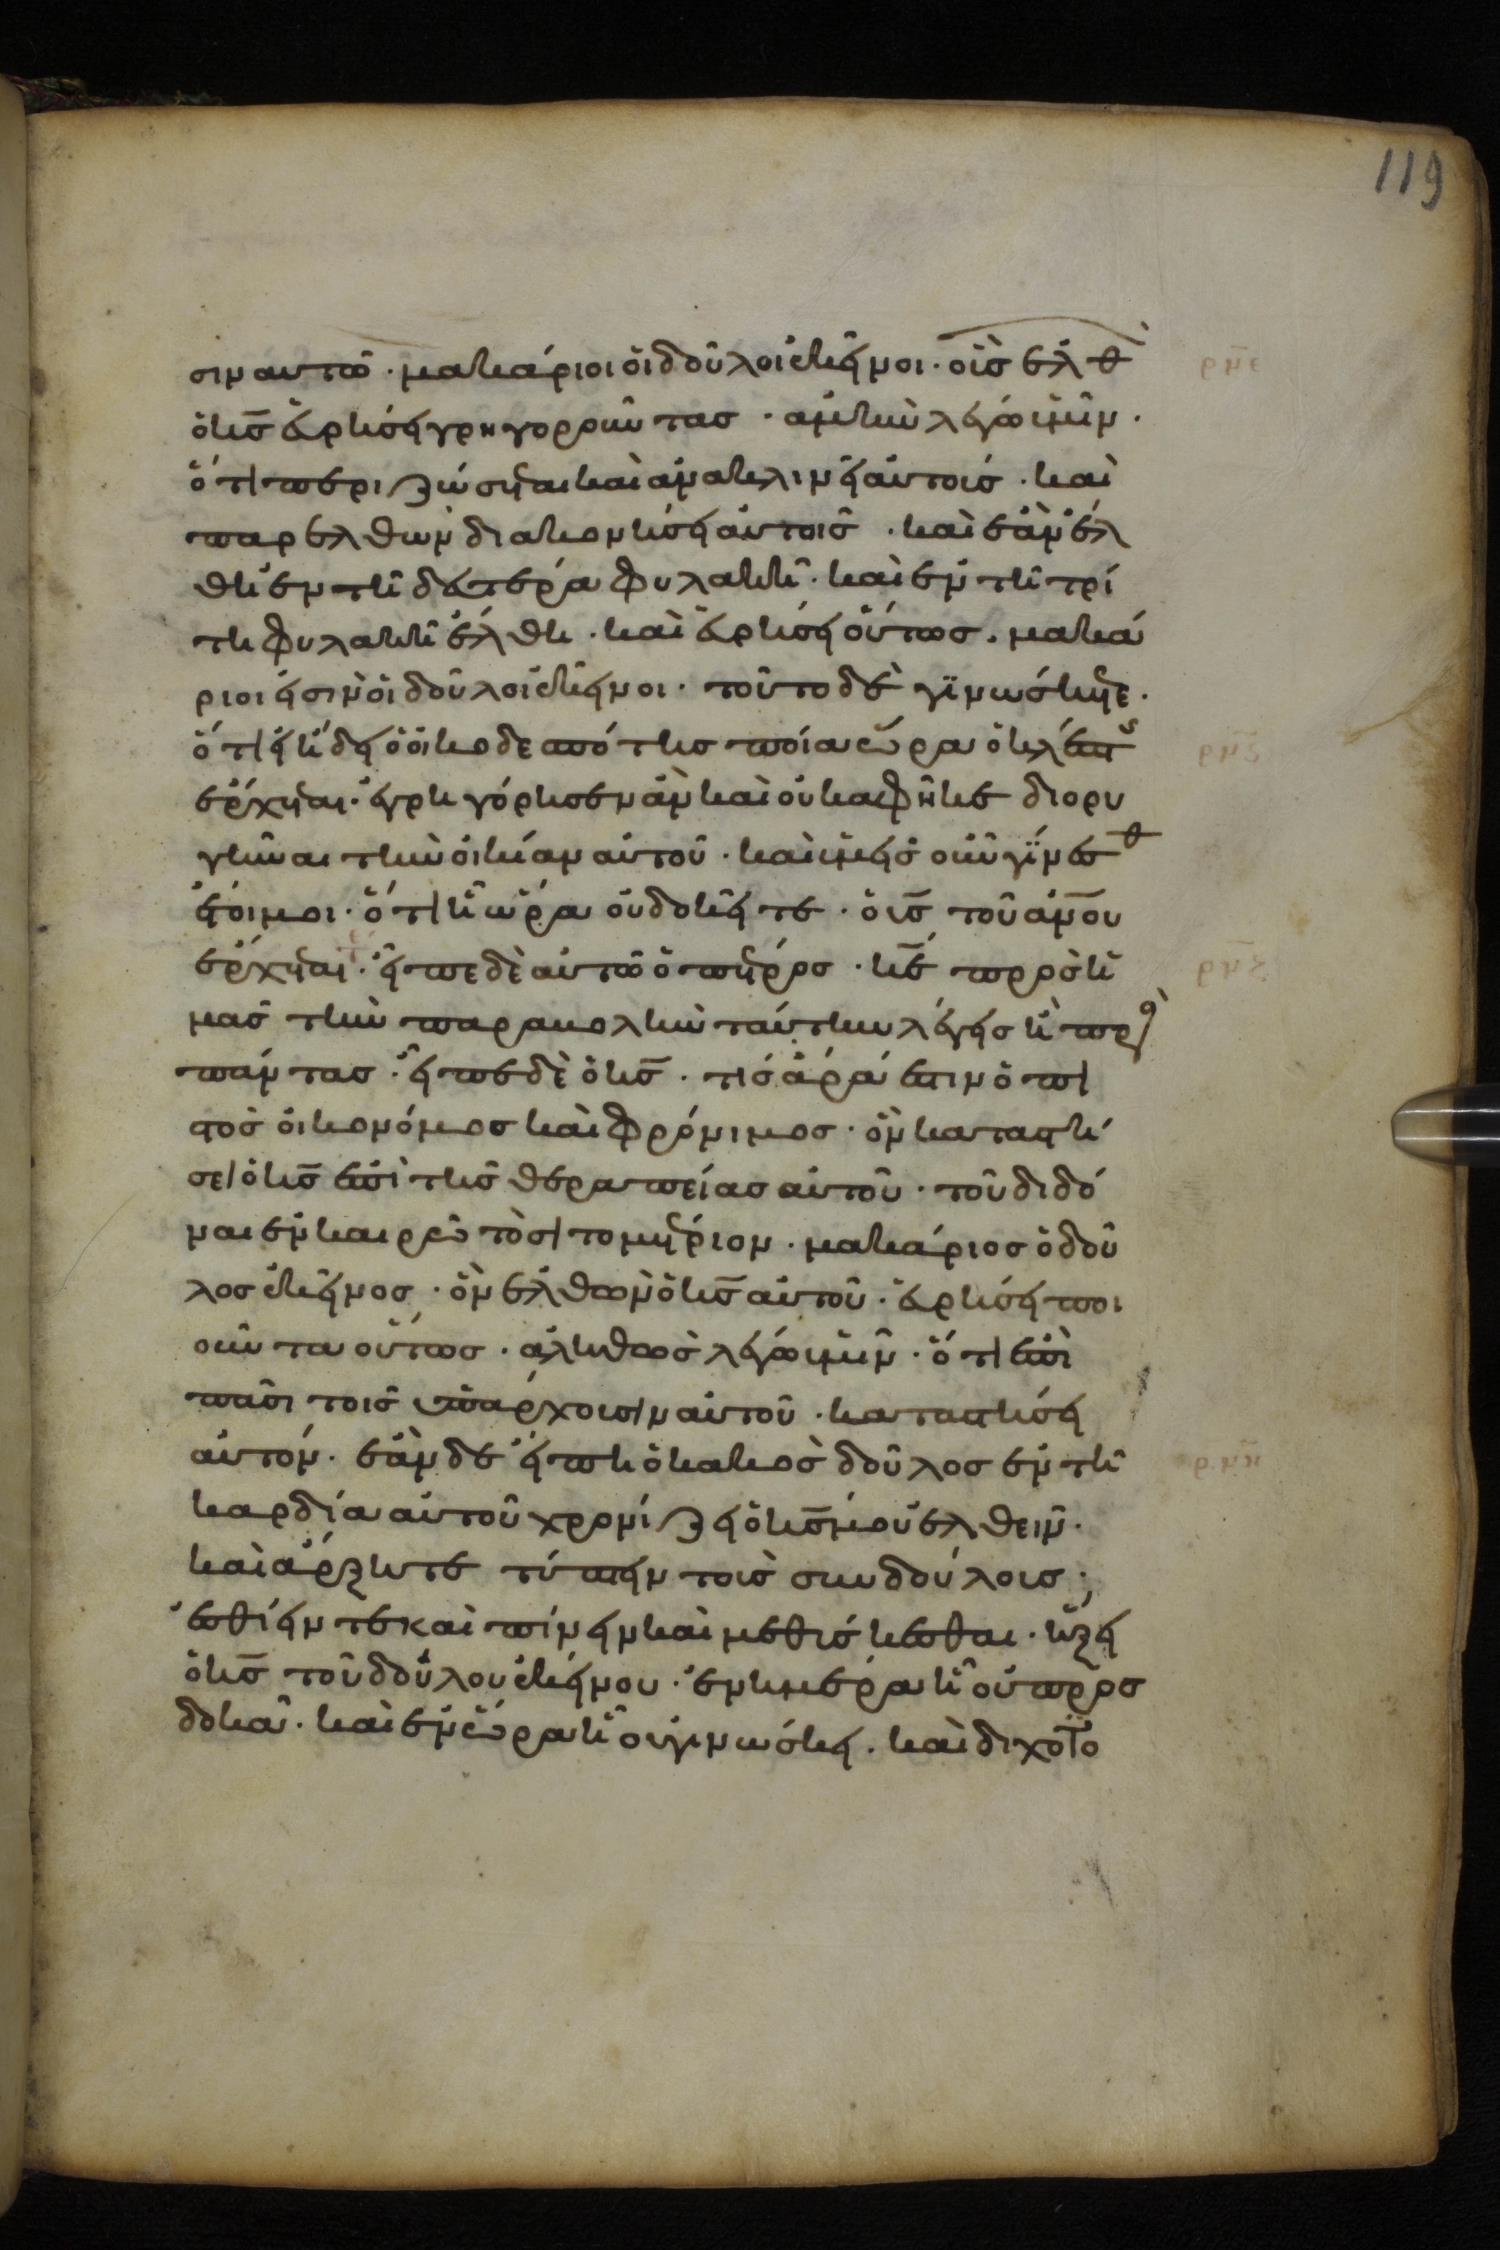 119
σιν αυτῶ · μακάριοι ὁι δοῦλοι ἐκεῖνοι · οὓς ἐλθ(ὼν)
ὁ κ̅ς̅ ἑυρήσει γρηγοροῦντας · ἀμὴν λέγω ὑμῖν ·
ὅτι περιζώσηται καὶ ἀνακλινεῖ αὐτούς · καὶ
παρελθὼν διακονήσει αὐτοῖς · καὶ ἐὰν ἔλ
θη ἐν τῆ δευτέρα φυλακῆ · καὶ ἐν τῆ τρί
τη φυλακῆ ἔλθη · καὶ ἕυρήσει οὕτως · μακά
ριοι εἰσιν ὁι δοῦλοι ἐκεῖνοι · τοῦτο δὲ γϊνώσκετε ·
ὅτι εἰ ἤδει ὁ ὀικοδεσπότης ποία ὥρα ὁ κλέπτης
ἔρχεται · ἐγρηγόρησεν ἂν καὶ οὐκ αφῆκε διορυ
γῆναι τὴν ὀικίαν αὐτοῦ · καὶ ὑμεῖς οὖν γΐνεσθ
ἕτοιμοι · ὅτι ἧ ὥρα οὐ δοκεῖτε · ὁ υ̅ς̅ τοῦ α̅ν̅ου
ἔρχεται · εἶπε δὲ αὐτῶ ὁ πέτρος · κ̅ε̅ πρὸς ἡ
μᾶς τὴν παραβολὴν ταύτην λέγεις ἢ πρὸς
πάντας · εἶπε δὲ ὁ κ̅ς̅ · τίς ἄρά ἐστιν ὁ πι
στὸς ὀικονόμος καὶ φρόνιμος · ὃν καταστή
σει ὁ κ̅ς̅ ἐπὶ τῆς θεραπείας αὐτοῦ · τοῦ διδό
ναι ἐν καιρῶ τὸ σιτομέτριον · μακάριος ὁ δοῦ
λος ἐκεῖνος · ὃν ἐλθὼν ὁ κ̅ς̅ αὐτοῦ · ἑυρήσει ποι
οῦντα οὕτως · ἀληθῶς λέγω ὑμῖν · ὅτι ἐπὶ
πᾶσι τοῖς ὑπάρχουσιν αὐτοῦ · καταστήσει
αὐτόν · ἐὰν δε εἴπη ὁ κακὸς δοῦλος ἐν τῆ
καρδία αὐτοῦ χρονίζει ὁ κ̅ς̅ μου ἐλθεῖν ·
καὶ ἄρξητε τύπτειν τοὺς συνδούλους ·
ἐσθίειν τε καὶ πίνειν καὶ μεθύσκεσθαι · ἥξει
ὁ κ̅ς̅ τοῦ δούλου ἐκείνου · ἐν ημέρα ἧ οὐ προσ
δοκᾶ · καὶ ἐν ὥρα ἧ ου γινώσκει · καὶ διχοτο